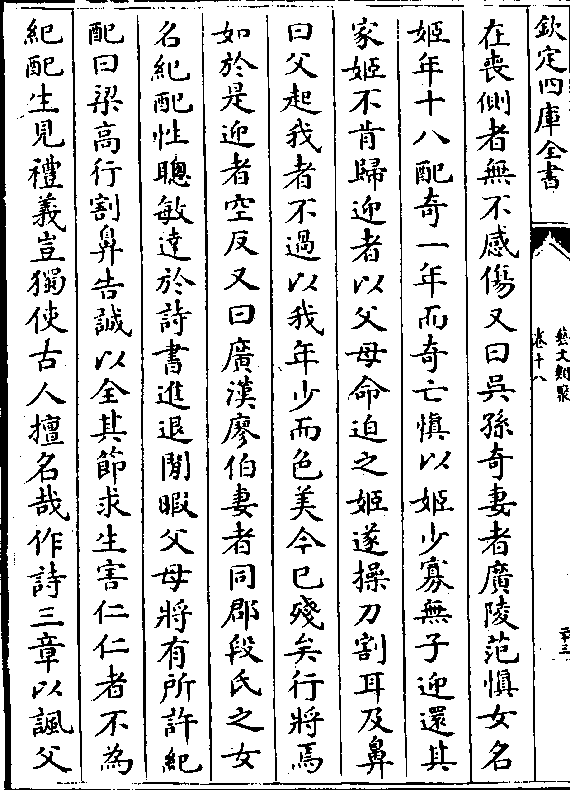 欽定四庫全書
藝文類聚
卷十八
在喪側者無不感傷又曰吳孫奇妻者廣陵范慎女名
姬年十八配奇一年而奇亡慎以姬少寡無子迎還其
家姬不肯歸迎者以父母命迫之姬遂操刀割耳及鼻
曰父起我者不過以我年少而色美今已殘矣行將焉
如於是迎者空反又曰廣漢廖伯妻者同郡段氏之女
名紀配性聰敏達於詩書進退閒暇父母將有所許紀
配曰梁高行割鼻告誠以全其節求生害仁仁者不為
紀配生見禮義豈獨使古人擅名哉作詩三章以諷父